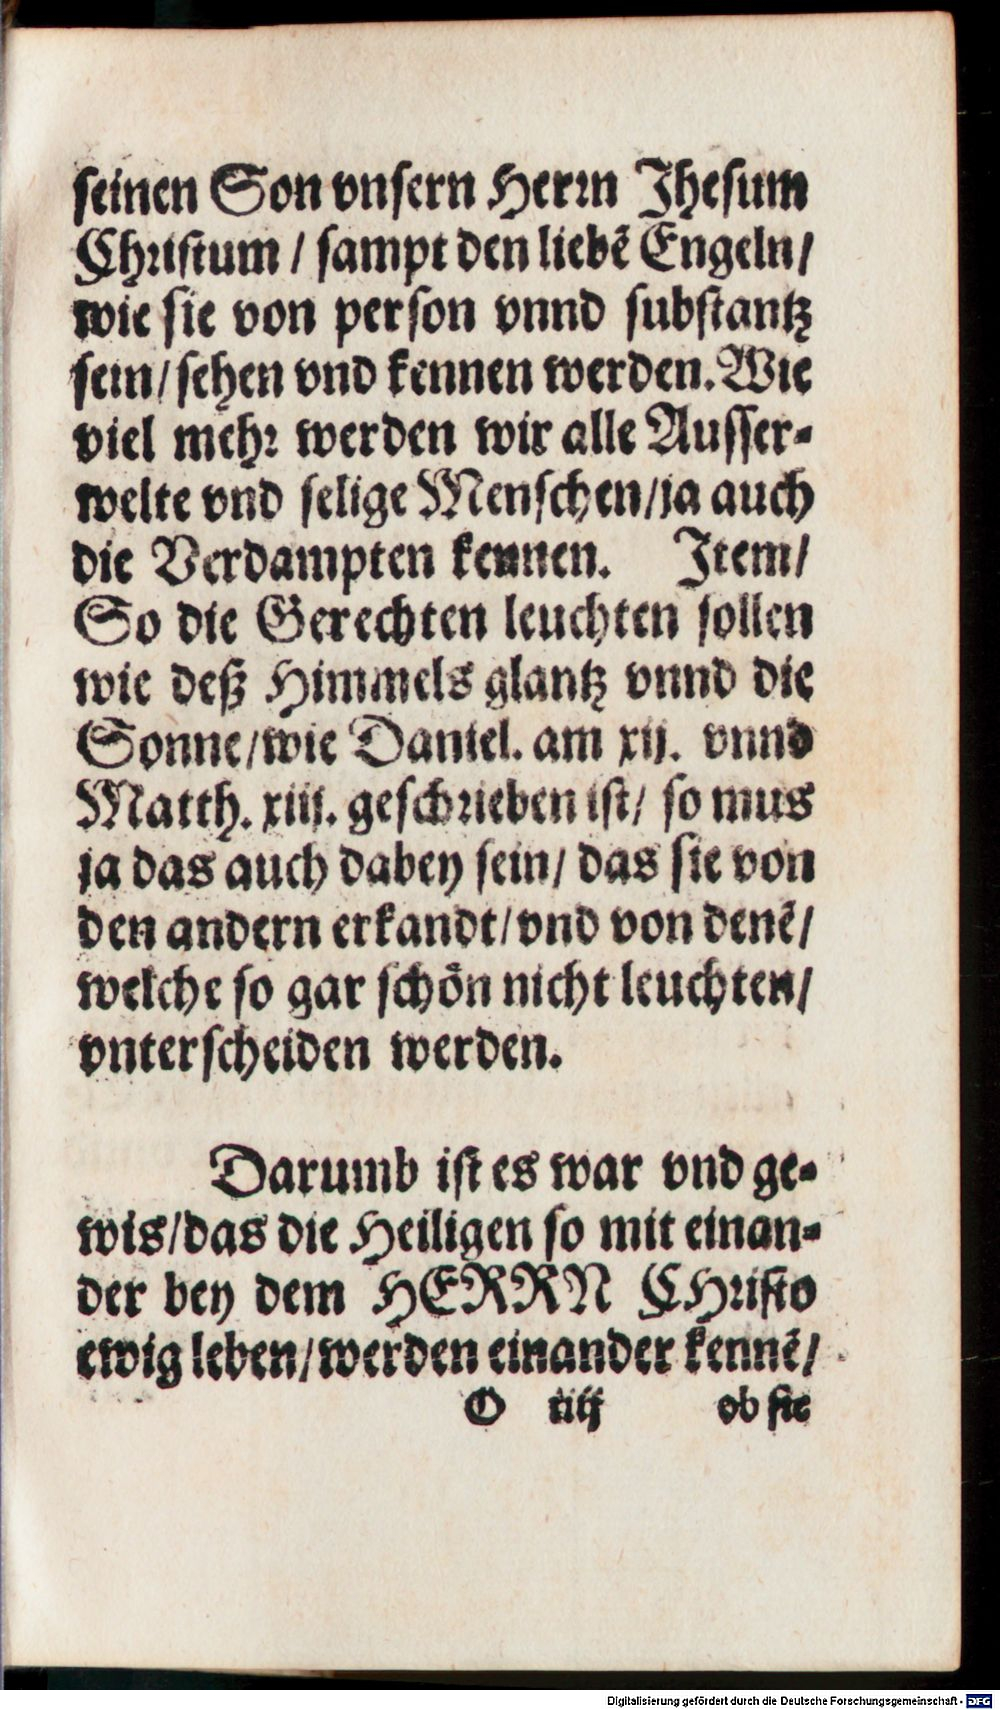 seinen Son vnsern Herrn Jhesum
Christum / sampt den liebẽ Engeln /
wie sie von person vnnd substantz
sein / sehen vnd kennen werden. Wie
viel mehr werden wir alle Ausser-
welte vnd selige Menschen / ja auch
die Verdampten kennen. Item /
So die Gerechten leuchten sollen
wie deß Himmels glantz vnnd die
Sonne / wie Daniel. am xij. vnnd
Matth. xiij. geschrieben ist / so mus
ja das auch dabey sein / das sie von
den andern erkandt / vnd von denẽ /
welche so gar schön nicht leuchten /
vnterscheiden werden.
Darumb ist es war vnd ge-
wis / das die Heiligen so mit einan-
der bey dem HERRN CHristo
ewig leben / werden einander kennẽ /
O iiij ob sie
Digitalisierung gefördert durch die Deutsche Forschungsgemeinschaft - DFG